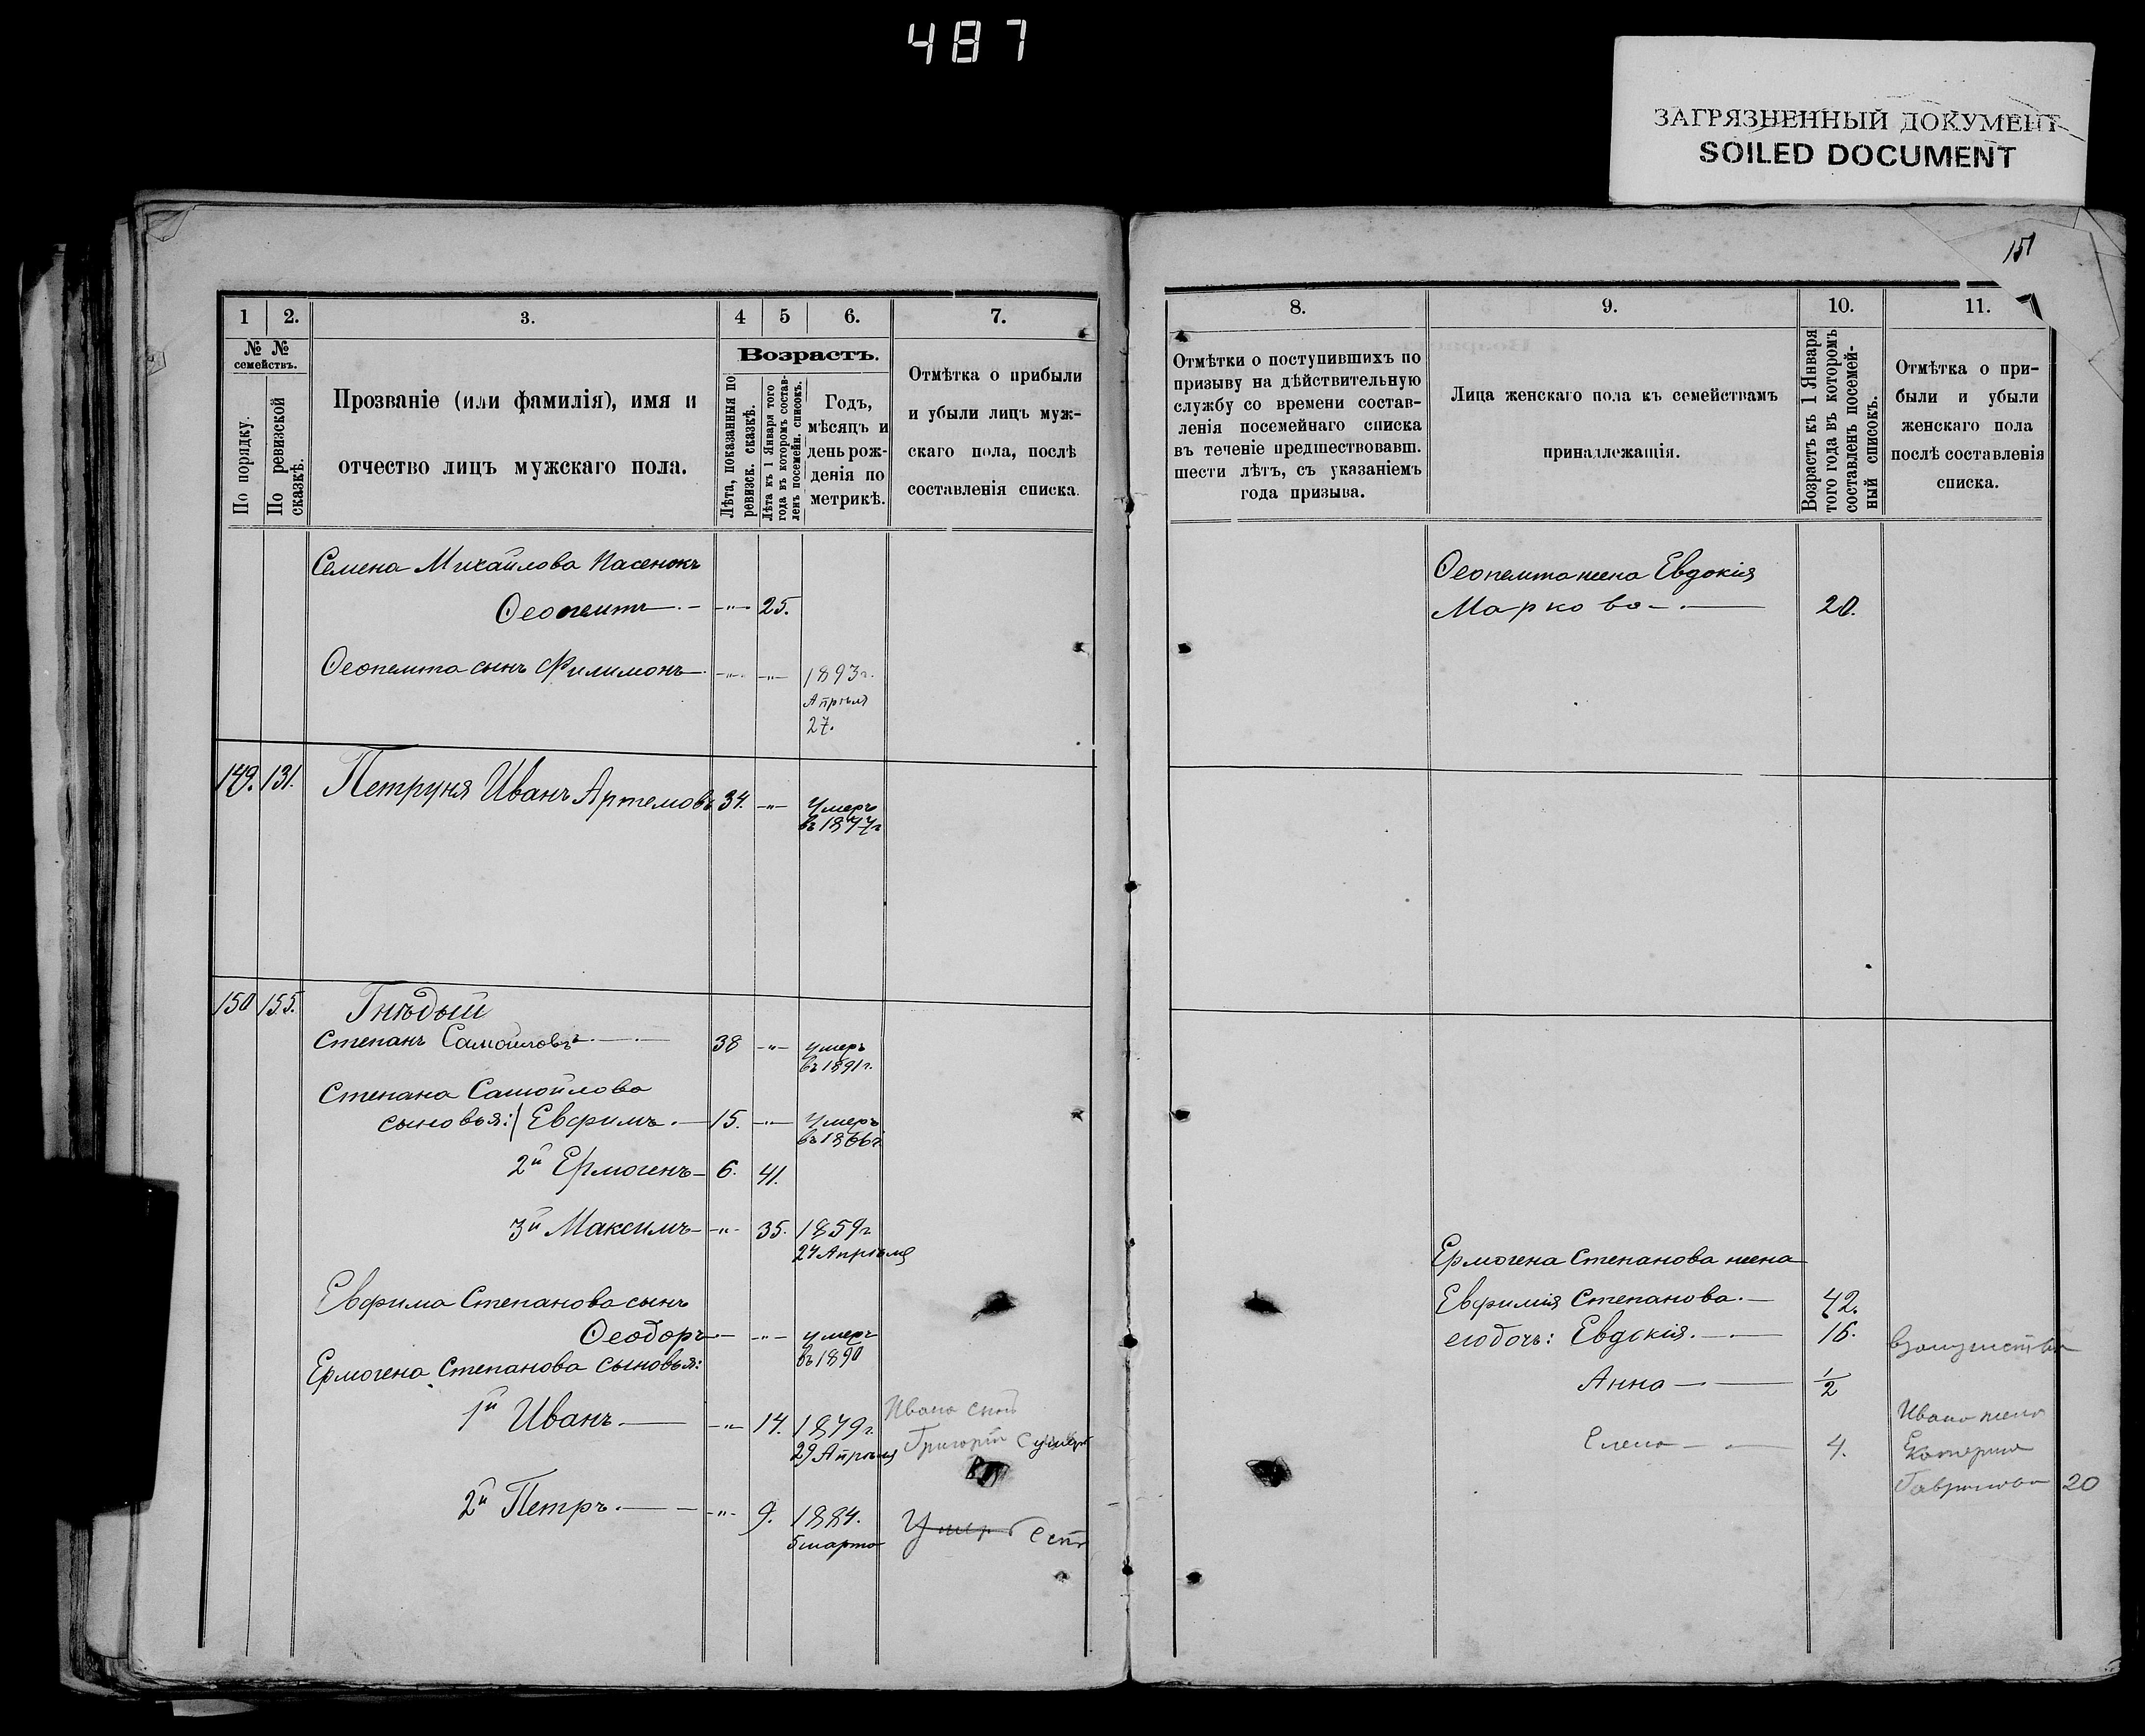 487
ЗАГРЯЗНЕННЫЙ ДОКУМЕНТ
SOILED DOCUMENT
151
1 2. 3. 4 5 6. 7.
№ № семействъ.
По порядку.
По ревизской сказкѣ.
Прозваніе (или фамилія), имя и
отчество лицъ мужскаго пола.
Возрастъ.
Лѣта, показанныя по ревизск. сказкѣ.
Лѣта къ 1 Января того года въ которомъ составленъ посемейн. списокъ.
Годъ,
мѣсяцъ и
день рож-
денія по
метрикѣ.
Отмѣтка о прибыли
и убыли лицъ муж-
скаго пола, послѣ
составленія списка.
Семена Михайлова Пасенокъ
Ѳеопемтъ 25.
Ѳеопемта сынъ Филимонъ 1893г.
Апрѣля
27.
149. 131. Петруня Иванъ Артемовъ 34. Умеръ
въ 1877г
150 155. Гнѣдый
Степанъ Самойловъ 38 умеръ
въ 1891г.
Степана Самойлова
сыновья: Евфимъ 15. Умеръ
въ 1866г.
2й Ермогенъ 6. 41.
3й Максимъ 35. 1859г
24 Апрѣля
Евфима Степанова сынъ
Ѳеодоръ умеръ
въ 1890
Ермогена Степанова сыновья:
1й Иванъ 14. 1879г.
29 Апрѣля
Ивана сынъ
Григорій умеръ
2й Петръ 9. 1884.
5 марта
Умеръ
8. 9. 10. 11.
Отмѣтки о поступившихъ по
призыву на дѣйствительную
службу со времени состав-
ленія посемейнаго списка
въ теченіе предшествовавш.
шести лѣтъ, съ указаніемъ
года призыва.
Лица женскаго пола къ семействамъ
принадлежащія.
Возрастъ къ 1 Января
того года въ которомъ
составленъ посемей-
ный списокъ.
Отмѣтка о при-
были и убыли
женскаго пола
послѣ составленія
списка.
Ѳеопемта жена Евдокія
Маркова 20.
Ермогена Степанова жена
Евфимія Степанова. 42.
его дочь: Евдокія. 16.
Взамужествѣ
Анна 1/2
Елена 4.
Ивана жена
Екатерина
20